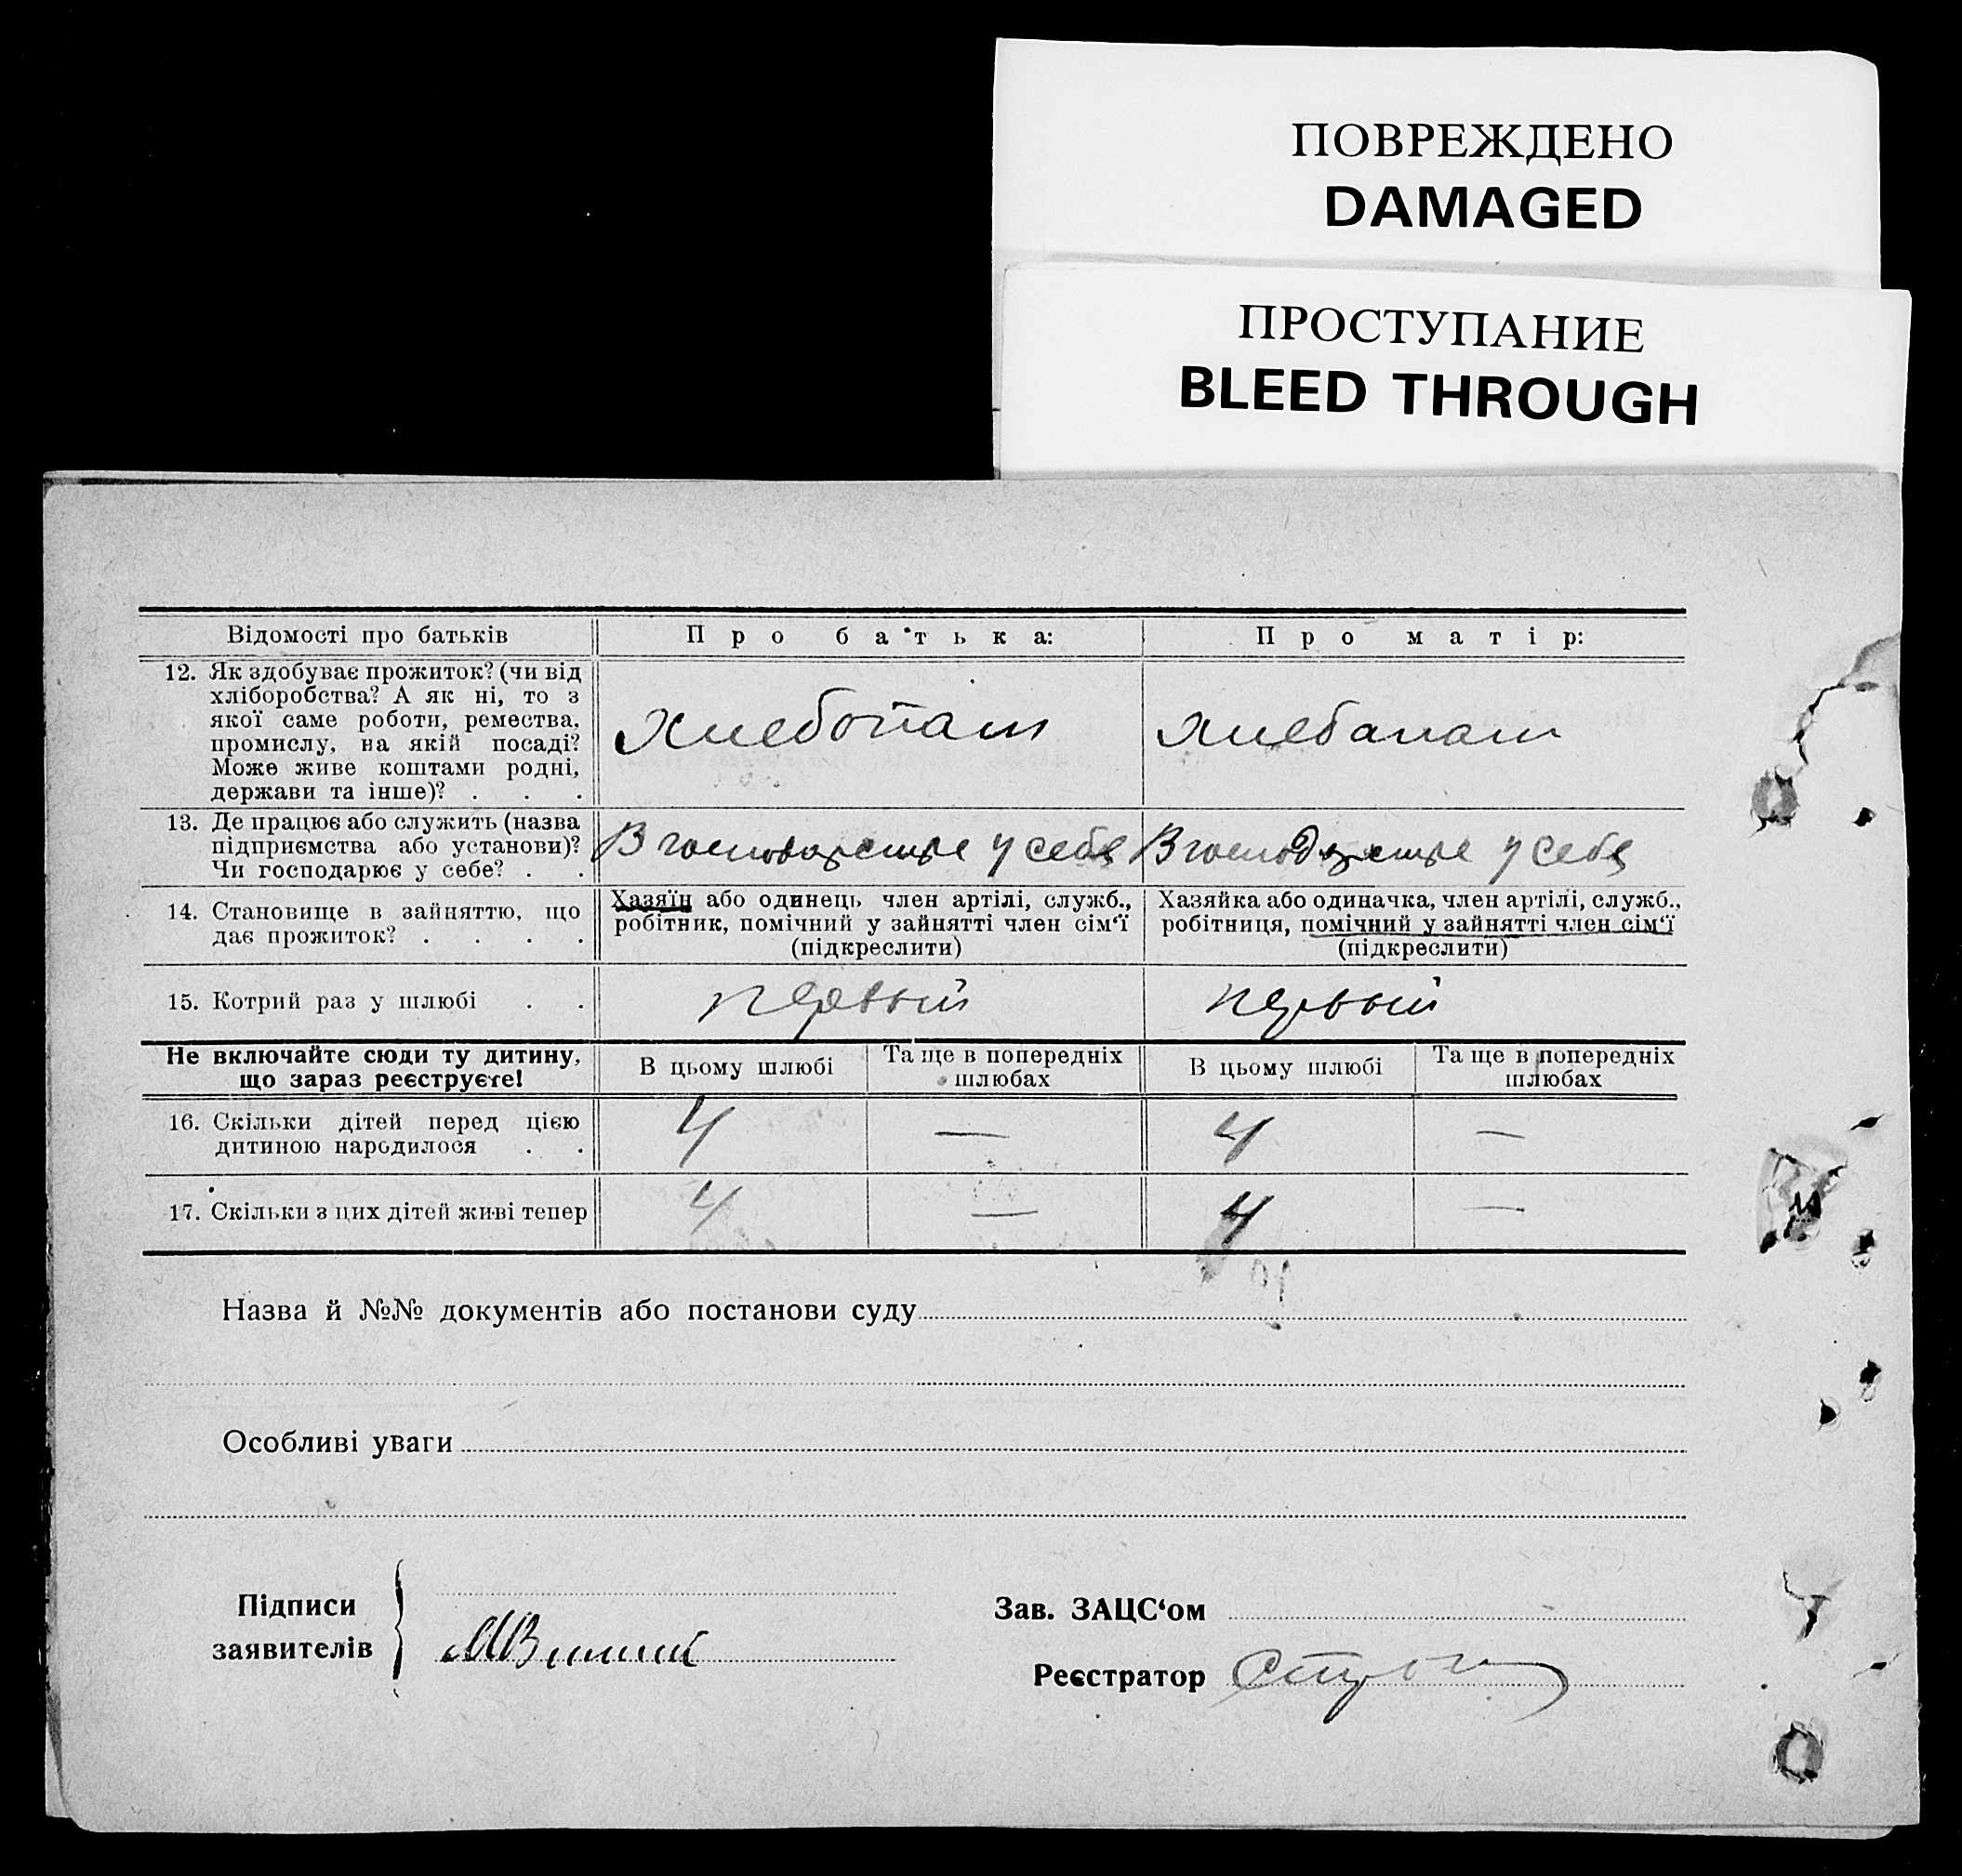 ПОВРЕЖДЕНО
DAMAGED
ПРОСТУПАНИЕ
BLEED THROUGH
Відомості про батьків
Про батька:
Про матір:
12. Як здобуває прожиток? (чи від
хліборобства? А як ні, то з
якої саме роботи, ремества,
промислу, на якій посаді?
Може живе коштами родні,
держави та інше)? . . .
Хлебопаш
Хлебапаш
13. Де працює або служить (назва
підприємства або установи)?
Чи господарює у себе? . .
В господарстве у себе
В господарстве у себе
14. Становище в зайняттю, що
дає прожиток? . . . .
Хазяїн або одинець член артілі, служб.,
робітник, помічний у зайнятті член сім‘ї
(підкреслити)
Хазяйка або одиначка, член артілі, служб.,
робітниця, помічний у зайнятті член сім‘ї
(підкреслити)
15. Котрий раз у шлюбі . .
первый
первый
Не включайте сюди ту дитину,
що зараз реєструєте!
В цьому шлюбі
Та ще в попередніх
шлюбах
В цьому шлюбі
Та ще в попередніх
шлюбах
16. Скільки дітей перед цією
дитиною народилося . .
4
—
4
—
17. Скільки з цих дітей живі тепер
4
—
4
—
Назва й №№ документів або постанови суду
Особливі уваги
Підписи
заявителів
Зав. ЗАЦС‘ом
Реєстратор